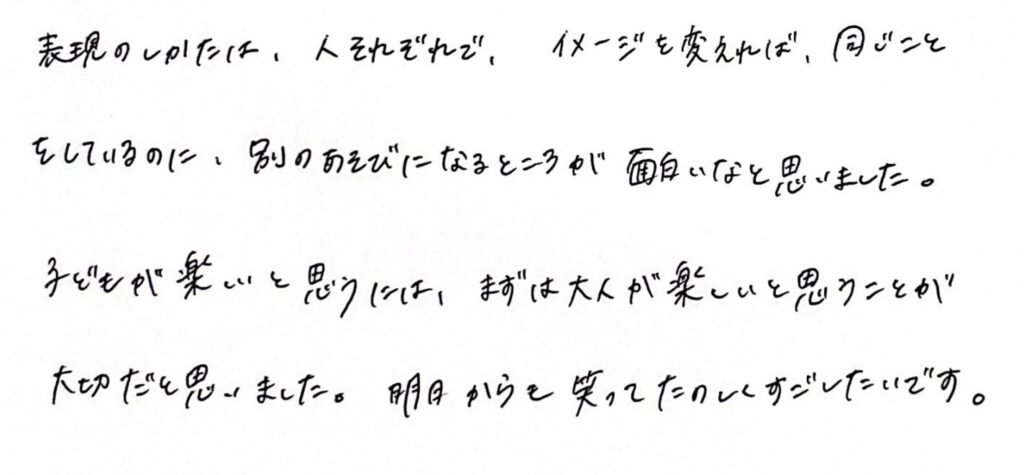 表現のしかたは、人それぞれで、イメージを変えれば、同じこと
をしているのに、別のあそびになるところが面白いなと思いました。
子どもが楽しいと思うには、まずは大人が楽しいと思うことが
大切だと思いました。明日からも笑ってたのしくすごしたいです。